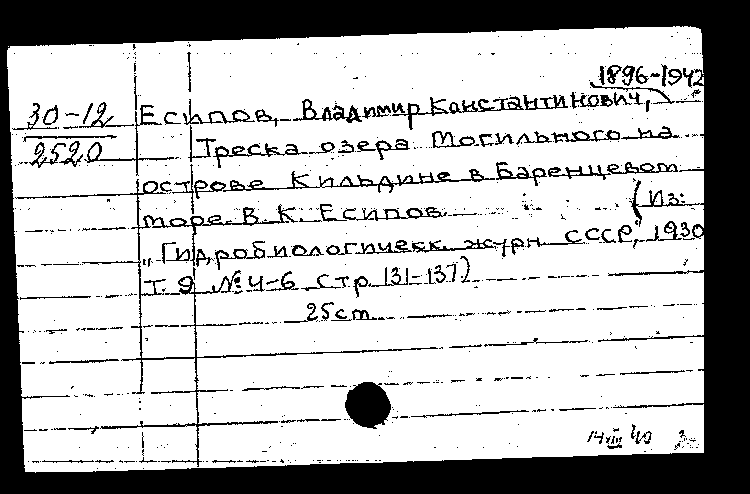 1896-1942
30-12
2520
Есипов, Владимир Константинович,
Треска озера Могильного на
острове Кильдине в Баренцевом
море. В. К. Есипов. (Из:
„Гидробиологическ. журн. СССР", 1930
т. 9 № 4-6 стр. 131-137)
25 cm.
14 VIII 40